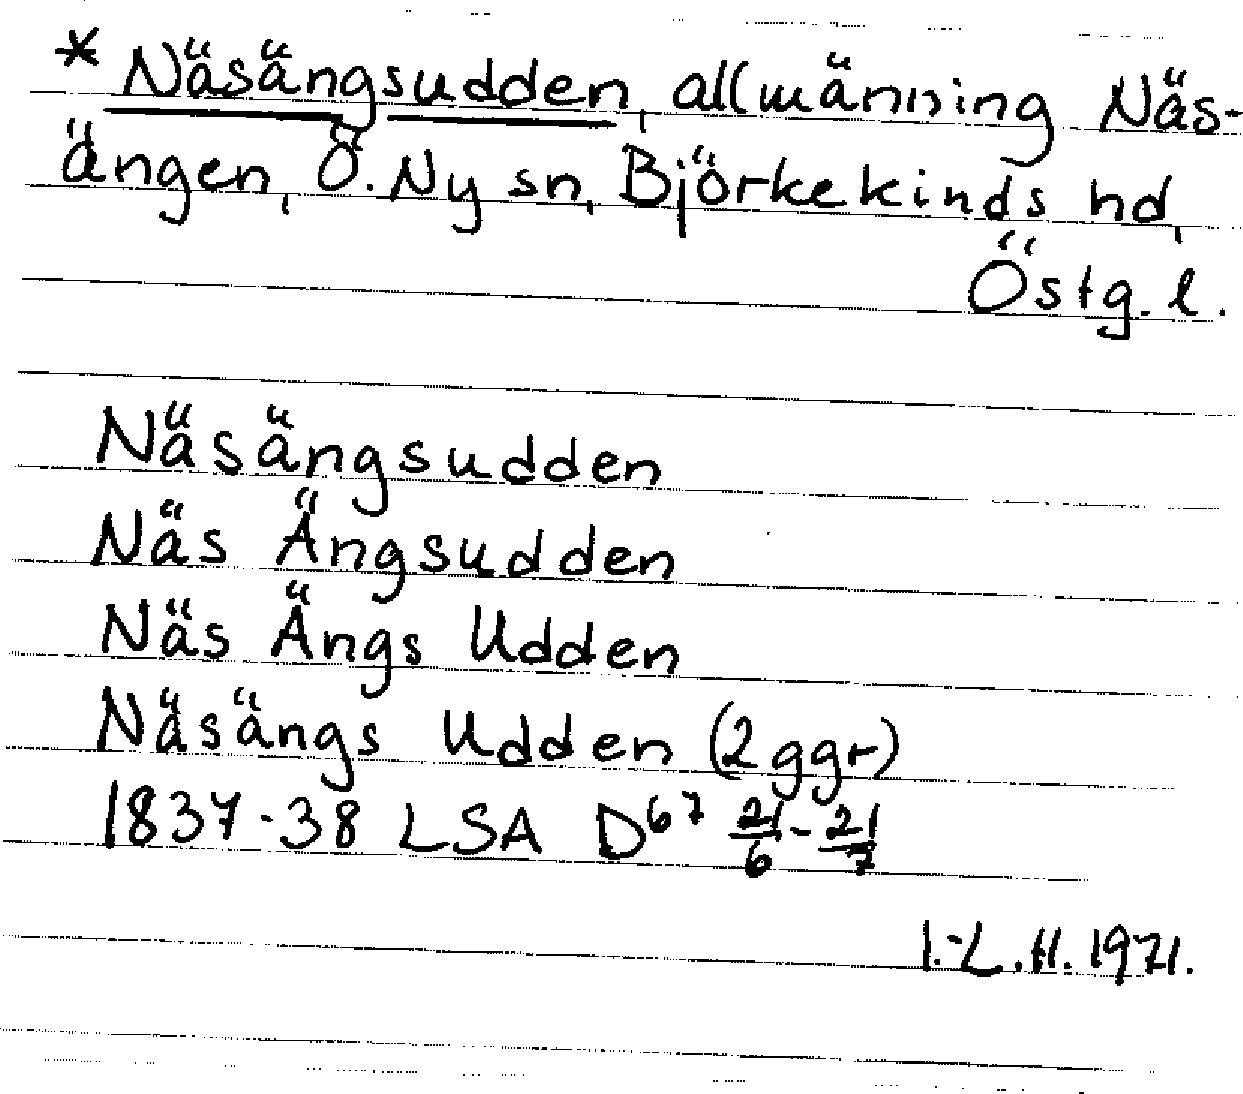 * Näsängsudden, allmänning Näs-
ängen, Ö. Ny sn, Björkekinds hd,
Östg. l.
Näsängsudden
Näs Ängsudden
Näs Ängs Udden
Näsängs Udden (2 ggr)
1837-38 LSA D67 21/6-21/7
I.-L.H. 1971.